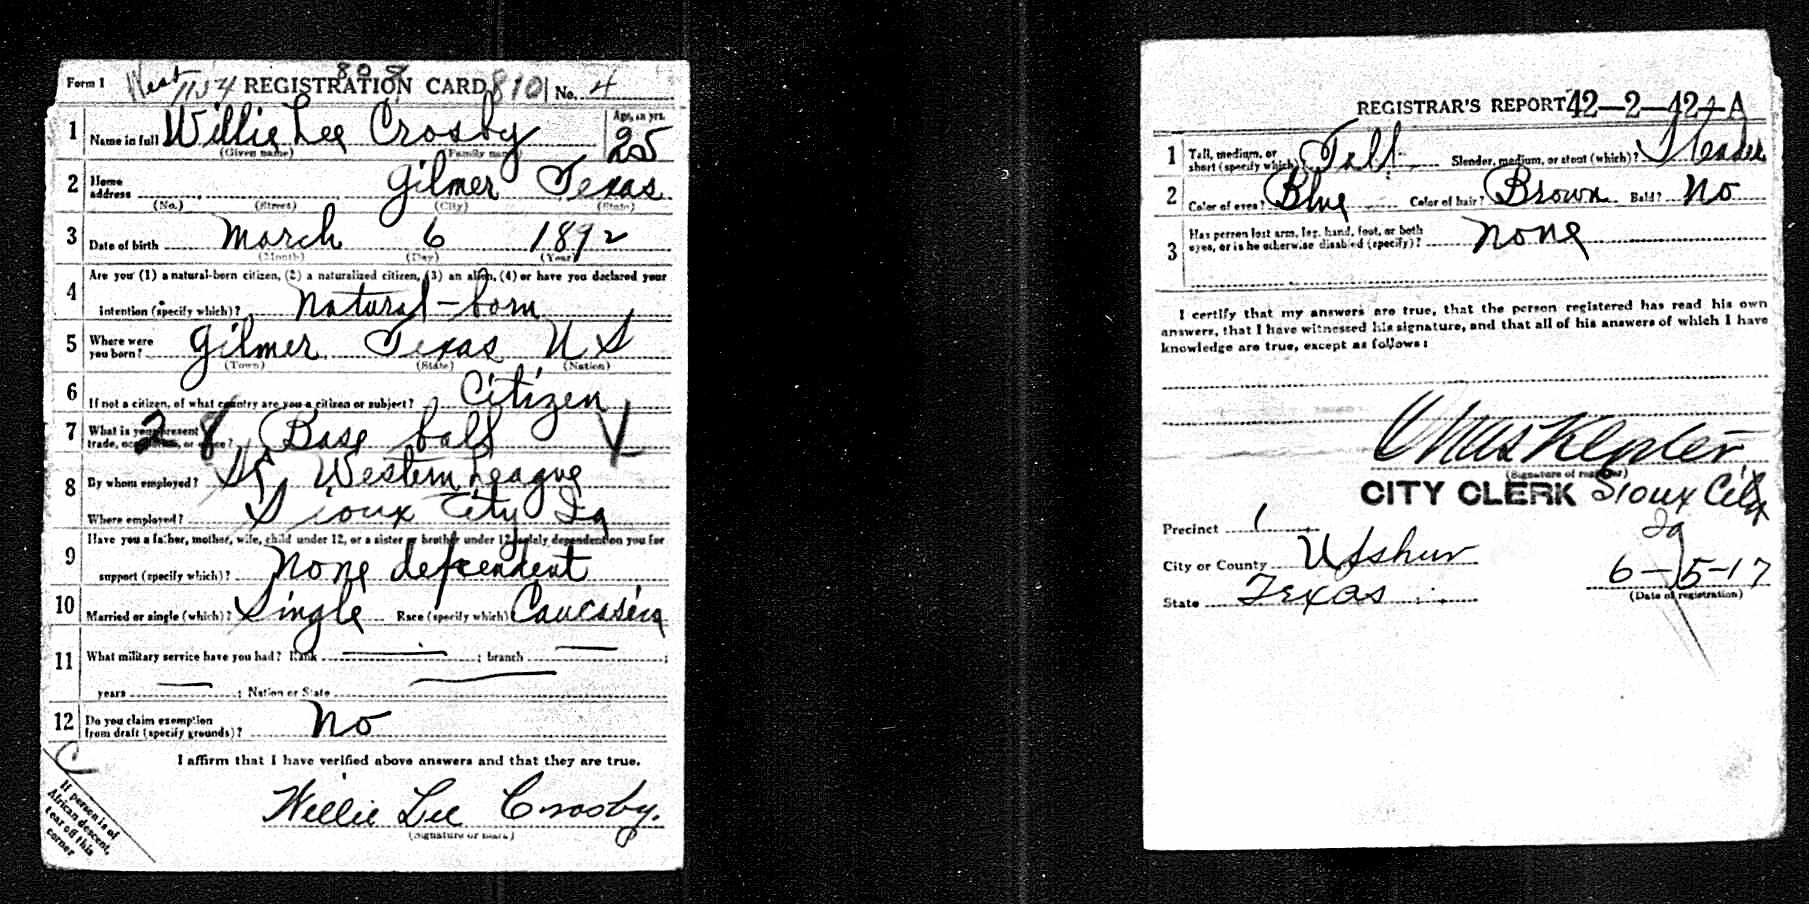 Form 1 1154 REGISTRATION CARD 808 810 No. 4
1 Name in full Willie Lee Crosby Age, in yrs. 25
(Given name) (Family name)
2 Home address Gilmer Texas
(No.) (Street) (City) (State)
3 Date of birth March 6 1892
(Month) (Day) (Year)
4 Are you (1) a natural-born citizen, (2) a naturalized citizen, (3) an alien, (4) or have you declared your
intention (specify which)? Natural-born
5 Where were you born? Gilmer Texas U S
(Town) (State) (Nation)
6 If not a citizen, of what country are you a citizen or subject? Citizen
7 What is your present trade, occupation, or office? 28 Base ball
8 By whom employed? Western League
Where employed? Sioux City Ia
9 Have you a father, mother, wife, child under 12, or a sister or brother under 12, solely dependent on you for
support (specify which)? None dependent
10 Married or single (which)? Single Race (specify which) Caucasian
11 What military service have you had? Rank — ; branch — ;
years — ; Nation or State —
12 Do you claim exemption from draft (specify grounds)? No
I affirm that I have verified above answers and that they are true.
C
Willie Lee Crosby.
(Signature or mark)
If person is of
African descent,
tear off this
corner
REGISTRAR'S REPORT 42-2-42-A
1 Tall, medium, or short (specify which)? Tall Slender, medium, or stout (which)? Slender
2 Color of eyes? Blue Color of hair? Brown Bald? No
3 Has person lost arm, leg, hand, foot, or both
eyes, or is he otherwise disabled (specify)? None
I certify that my answers are true, that the person registered has read his own
answers, that I have witnessed his signature, and that all of his answers of which I have
knowledge are true, except as follows:
(Signature of registrar)
CITY CLERK Sioux City
Ia
Precinct 1
City or County Upshur
State Texas
6-5-17
(Date of registration)